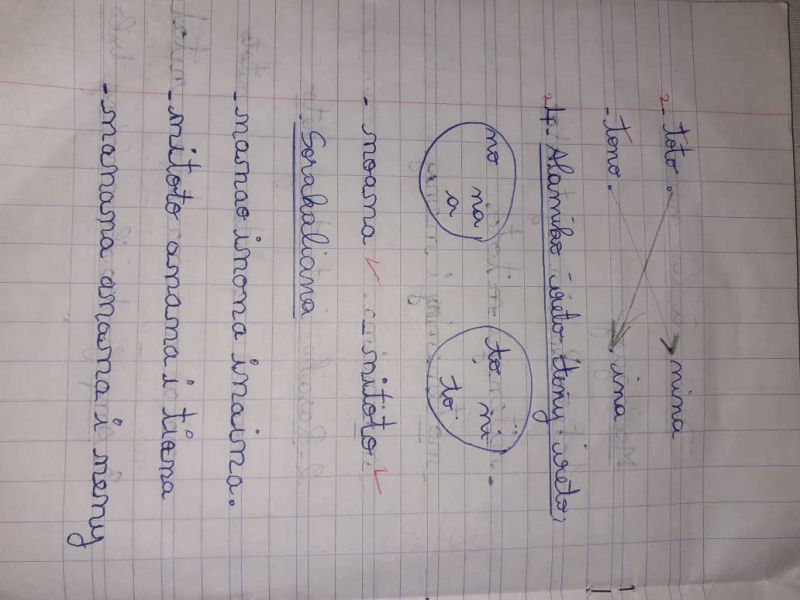 - toto . . nina
- tono . . ina
4. Alamibo ireto teny ireto:
no na a to mi to
- noana - mitoto
Sorakaliana
- manao inona inaina.
- mitoto anana i tiana
- manana anana i neny